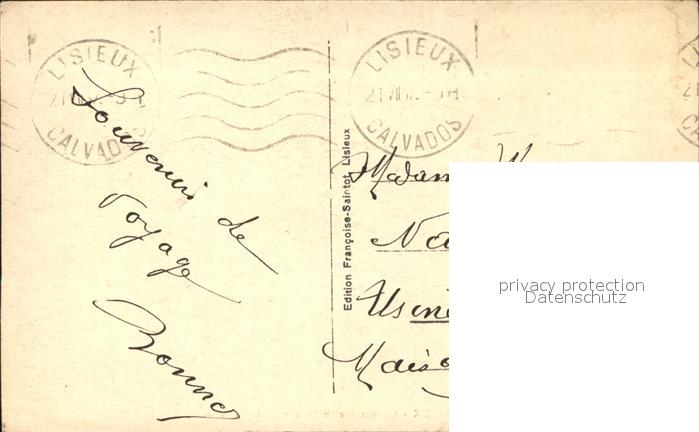 LISIEUX
CALVADOS
LISIEUX
CALVADOS
Souvenir de
voyage
Edition Françoise-Saintot, Lisieux
Madam
Na
Usine
Maiso
privacy protection
Datenschutz